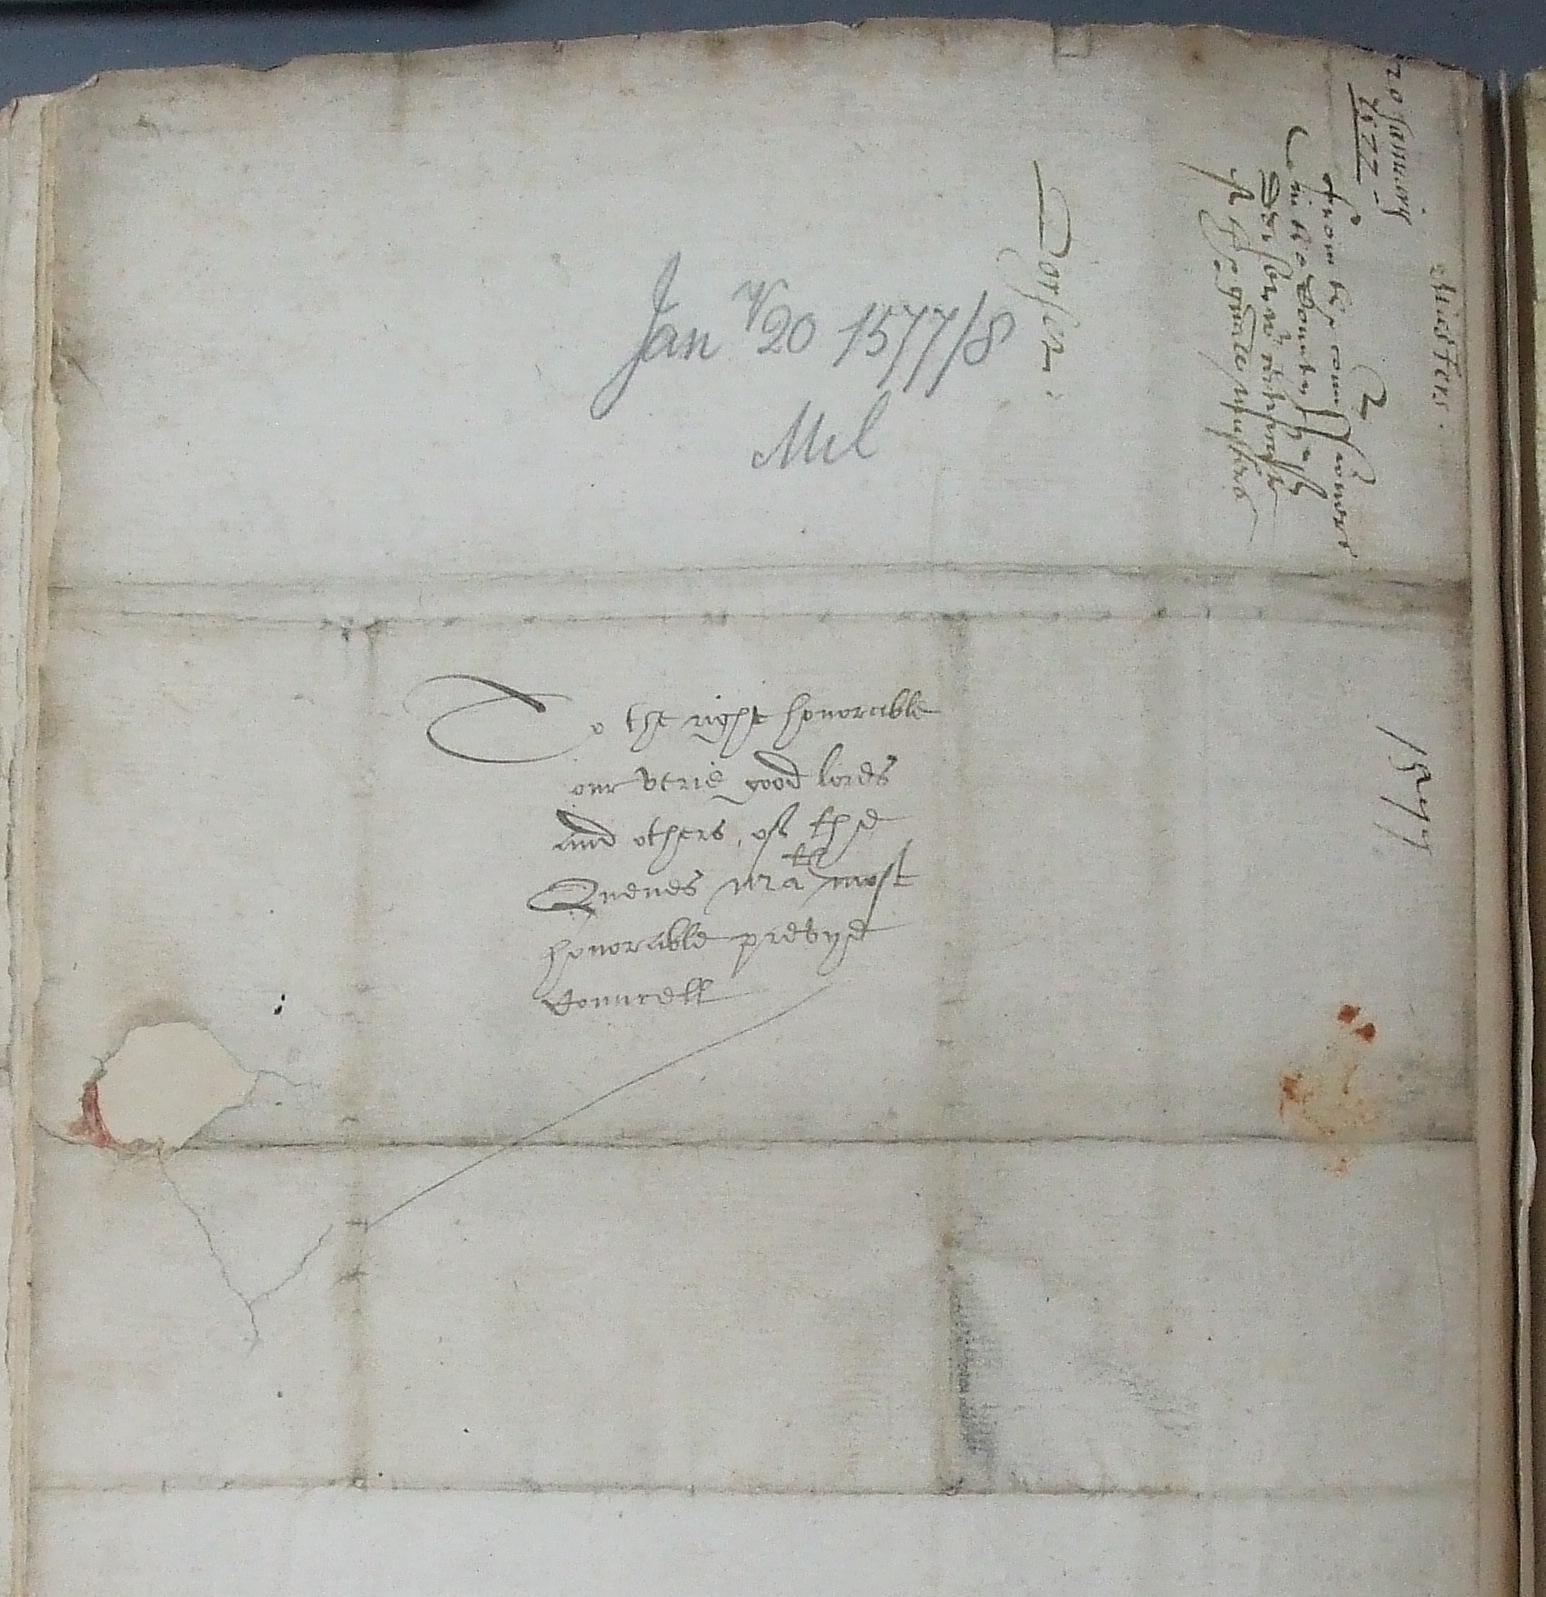 20 January
1577
Musters.
from the commissioners
in the Countye of
Dorset
the generall musters
Dorset:
Jan y 20 1577/8
Mil
To the right honorable
our verie good lordes
and others, of the
Quenes ma^tes most
honorable prevye
Councell
1577